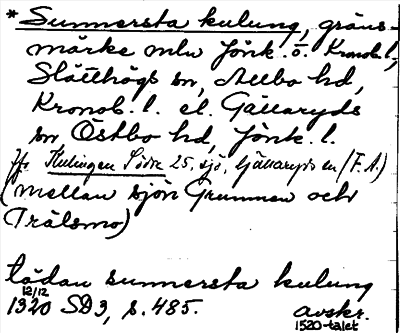 * Sunnersta kulung, gräns-
märke mlv Jönk. o. Kronob. l,
Slätthögs sn, Allbo hd,
Kronob. l. el. Gällaryds
sn Östbo hd, Jönk. l.
Jfr Kulingen Södra 25, sjö, Gällaryds sn (F. A.)
(mellan sjön Grunnen och
Trälsmo)
lädan sunnersta kulung
12/12
1320 SD3, s. 485.
avskr.
1520-talet